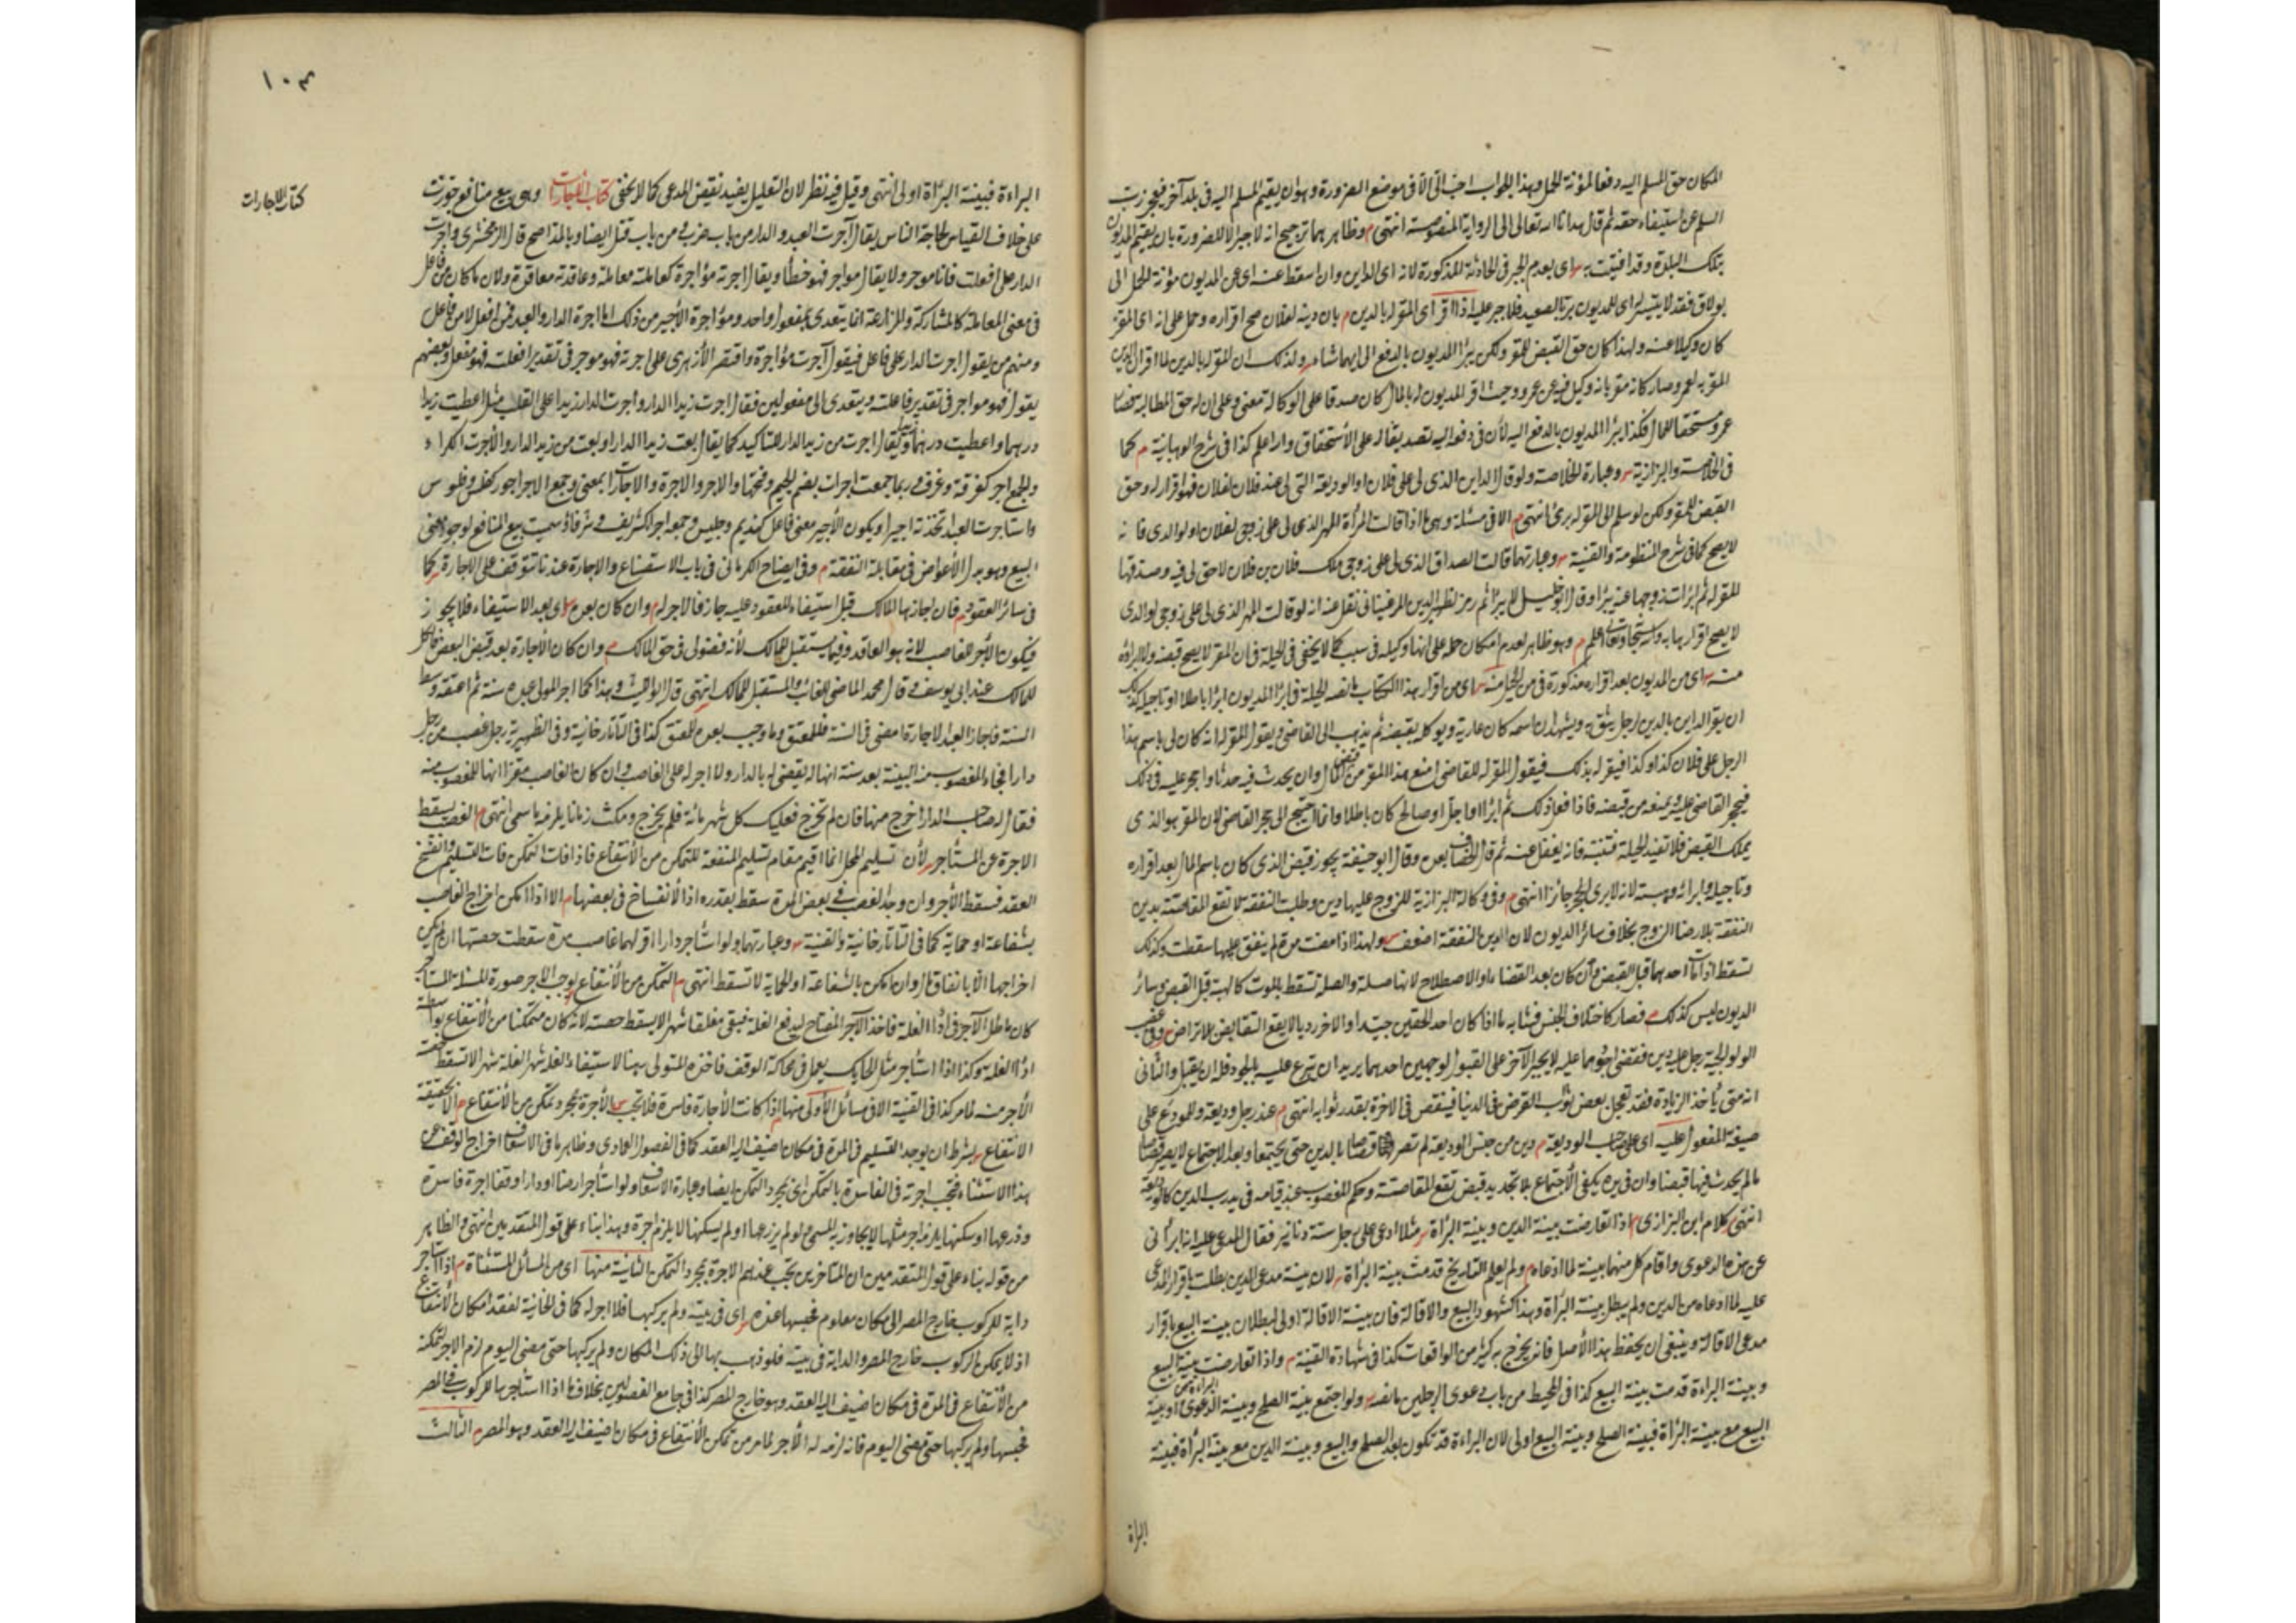 المكان حق المسلم اليه دفعا لمؤنة الحمل وبهذا الجواب اجبنا الا في موضع الضرورة وهو ان يقيم المسلم اليه في بلد آخر فيعجز رب
السلم عن استيفاء حقه ثم قال هدانا الله تعالى الى الرواية المنصوصة انتهى م وظاهرهما ترجيح انه لا جبر الا للضرورة بان يقيم المديون
بتلك البلدة وقد افتيت به اى بعدم الجبر في الحادثة المذكورة لانه اى الداين وان اسقط عنه اى عن المديون مؤنة الحمل الى
بولاق فقد لا يتيسر له اى للمديون بر بالصعيد فلا جبر عليه اذا اقر اى المقر له بالدين م بان دينه لفلان صح اقراره وحمل على انه اى المقر
كان وكيلا عنه ولهذا كان حق القبض للمقر ولكن يبرأ المديون بالدفع الى ايهما شاء ولذلك ان المقر له بالدين لما اقر ان الدين
المقر به لعمرو صار كانه مقر بانه وكيل فيه عن عمرو وحيث اقر المديون له بالمال كان مصدقا على الوكالة معنى وعلى ان له حق المطالبة
عمرو مستحقا للمال فكذا يبرأ المديون بالدفع اليه لأن في دفعه اليه تصديقا له على الأستحقاق والله اعلم كذا في شرح الوهبانية م كما
في الخلاصة والبزازية وعبارة الخلاصة ولو قال الداين الذى لى على فلان او الوديعة التى لى عند فلان لفلان فهو اقرار له وحق
القبض للمقر ولكن لو سلم الى المقر له برئ انتهى م الا في مسئلة وهي ما اذا قالت المرأة المهر الذى لى على زوجى لفلان او لوالدى فانه
لا يصح كما في شرح المنظومة والقنية وعبارتهما قالت الصداق الذى لى على زوجى ملك فلان بن فلان لا حق لى فيه وصدقها
المقر له ثم ابرأت زوجها عنه يبرأ وقال لا يبرأ ثم رمز لظهير الدين المرغينانى نقل عنه انه لو قالت المهر الذى لى على زوجى لوالدى
لا يصح اقرارها به والله سبحانه وتعالى اعلم م وهو ظاهر لعدم امكان حمله على انها وكيله في سبب كما لا يخفى في الحيلة في ان المقر لا يصح قبضه ولا ابراؤه
منه اى من المديون بعد اقراره مذكورة في من الحيل منه اى من اقرار هذا الكتاب ما نصه الحيلة في ابرا المديون ابرا باطلا او تاجيله كذلك
ان يقر الداين بالدين لرجل يثق به ويشهد ان اسمه كان عارية ويوكله بقبضه ثم يذهب الى القاضى ويقول المقر له انه كان لى باسم هذا
الرجل على فلان كذا وكذا فيقر له بذلك فيقول المقر له للقاضى امنع هذا المقر من قبض المال وان يحدث فيه حدثا واحجر عليه في ذلك
فيحجر القاضى عليه ويمنعه من قبضه فاذا فعل ذلك ثم ابرا او اجل او صالح كان باطلا وانما احتيج الى حجر القاضى لان المقر هو الذى
يملك القبض فلا تفيد الحيلة فتنبه فانه يغفل عنه ثم قال الخصاف بعده وقال ابو حنيفة يجوز قبض الذى كان باسمه المال بعد اقراره
وتاجيله وابراءه وهبته لانه لا يرى الحجر جائزا انتهى م وفي وكالة البزازية للزوج عليها دين وطلبت النفقة لا تقع المقاصة بدين
النفقة بلا رضا الزوج بخلاف سائر الديون لان الدين النفقة اضعف ولهذا اذا مضت مدة لم ينفق عليها سقطت وكذلك
تسقط اذا مات احدهما قبل القبض وان كان بعد القضاء او الاصطلاح لانها صلة والصلة تسقط بالموت كالهبة قبل القبض وسائر
الديون ليس كذلك م فصار كاختلاف الجنس فشابه ما اذا كان احد الحقين جيدا والاخر رديا لا يقع التقابض بلا تراض وفي غصب
الولوالجية رجل عليه دين فقضى اجود مما عليه لا يجبر الآخر على القبول لوجهين احدهما يريد ان يتبرع عليه بالجودة فله ان لا يقبل والثانى
انه متى ياخذ الزيادة فقد تعجل بعض ثواب القرض في الدنيا فينقص في الاخرة بقدر ثوابه انتهى م عند رجل وديعة وللمودع على
صيغة المفعول عليه اى على صاحب الوديعة م دين من جنس الوديعة لم تصر قصاصا بالدين حتى يجتمعا وبعد الاجتماع لا يصير قصاصا
ما لم يحدث فيها قبضا وان في يده يكفى الأجتماع بلا تجديد قبض تقع المقاصة وحكم المغصوب عند قيامه في يد رب الدين كالوديعة
انتهى كلام ابن البزازى م اذا تعارضت بينة الدين وبينة البراءة مثلا ادعى على رجل ستة دنانير فقال المدعى عليه انه ابرأنى
عن هذه الدعوى واقام كل منهما بينة لما ادعاه ولم يعلم التاريخ قدمت بينة البراءة لان بينة مدعى الدين بطلت باقرار المدعى
عليه لما ادعاه من الدين ولم يبطل بينة البراءة وهذا كشهود البيع والاقالة فان بينة الاقالة اولى لبطلان بينة البيع باقرار
مدعى الاقالة وينبغى ان يحفظ هذا الأصل فانه يخرج به كثير من الواقعات كذا في شهادة القنية م واذا تعارضت بينة البيع
وبينة البراءة قدمت بينة البيع كذا في المحيط من باب دعوى الرجلين ما نصه ولو اجتمع بينة الصلح وبينة الدعوى او بينة
البيع مع بينة البراءة فبينة الصلح وبينة البيع اولى لان البراءة قد تكون بعد الصلح والبيع وبينة الدين مع بينة البراءة فبينة
البراة
١٠٣
كتاب الاجارات
البراءة فبينة البراءة اولى انتهى وقيل فيه نظر لان التعليل يفيد نقيض المدعى كما لا يخفى كتاب الاجارات وهى بيع منافع جوزت
على خلاف القياس لحاجة الناس يقال آجرت العبد والدار من باب ضرب ومن باب قتل ايضا وبالمد اصح قال الزمخشرى وآجرت
الدار على افعلت فانا موجر ولا يقال مواجر فهو خطأ ويقال اجرته مؤاجرة كعاملته معاملة وعاقدته معاقدة ولان ما كان من فاعل
في معنى المعاملة كالمشاركة والمزارعة انما يتعدى لمفعول واحد ومؤاجرة الأجير من ذلك اما اجرة الدار والعبد فمن افعل لا من فاعل
ومنهم من يقول اجرت الدار على فاعل فيقول آجرت مؤاجرة واقتصر الأزهرى على اجرته فهو موجر في تقدير افعلت فهو مفعل وبعضهم
يقول فهو مواجر في تقدير فاعلته ويتعدى الى مفعولين فقال اجرت زيدا الدار واجرت الدار زيدا على القلب مثل اعطيت زيدا
درهما واعطيت درهما زيدا ويقال اجرت من زيد الدار للتاكيد كما يقال بعت زيدا الدار او بعت من زيد الدار والأجرة الكراء
والجمع اجر كغرفة وغرف وربما جمعت اجرات بضم الجيم وفتحها والاجر والاجرة والاجارة بمعنى وجمع الاجر اجور كفلس وفلوس
واستاجرت العبد اتخذته اجيرا ويكون الأجير معنى فاعل كنديم وجليس وجمعه اجراء كشريف وشرفاء سميت بيع المنافع لوجود معنى
البيع وهو بدل الأعواض في مقابلة النفقة م وفي ايضاح الكرمانى في باب الاستصناع والاجارة عندنا تتوقف على الاجارة كما
في سائر العقود م فان اجازها المالك قبل استيفاء المعقود عليه جاز فالاجر له وان كان بعده اى بعد الاستيفاء فلا يجوز
فيكون الأجر للغاصب لانه هو العاقد وفيما يستقبل للمالك لأنه فضولى في حق المالك م وان كان الأجارة بعد قبض البعض فالكل
للمالك عند ابى يوسف وقال محمد الماضى للغاصب والمستقبل للمالك انتهى قال وهذا كما اجر المولى عبده سنة ثم اعتقه وسط
السنة فاجاز العبد الاجارة فما مضى في السنة فللمعتق وما وجب بعده للعتق كذا في التاتارخانية وفي الظهيرية رجل غصب من رجل
دارا فجاء المغصوب منه البينة بعد سنة انها له يقضى له بالدار ولا اجر له على الغاصب وان كان الغاصب مقرا انها للمغصوب منه
فقال له صاحب الدار اخرج منها فان لم تخرج فعليك كل شهر مائة فلم يخرج ومكث زمانا يلزمه ما سمى انتهى م الغصب يسقط
الاجرة عن المستأجر لأن تسليم المحل انما اقيم مقام تسليم المنفعة للتمكن من الأنتفاع فاذا فات التمكن فات التسليم وانفسخ
العقد فسقط الأجر وان وجد الغصب في بعض المدة سقط بقدره اذ الأنفساخ في بعضها م الا اذا امكن اخراج الغاصب
بشفاعة او حماية كما في التاتارخانية والقنية وعبارتهما ولو استأجر دارا اقر لهما غاصب مدة سقطت حصتها ان لم يمكن
اخراجها الا بانفاق مال وان امكن بالشفاعة او الحماية لا تسقط انتهى م التمكن من الأنتفاع يوجب الاجر صورة المسئلة المستأجر
كان ماطل الآجر في اداء الغلة فاخذ الآجر المفتاح ليدفع الغلة فبقى مغلقا شهرا لا يسقط حصته لانه كان متمكنا من الأنتفاع بواسطة
اداء الغلة وكذا اذا استأجر مثل الحايك يعمل في محاكة الوقف فاخذه المتولى رهنا لاستيفاء الغلة شهرا لا تسقط
الأجر منه لما مر كذا في القنية الا في مسائل الأولى منها اذا كانت الأجارة فاسدة فلا تجب الأجرة بمجرد تمكن من الأنتفاع م الا بحقيقة
الانتفاع بشرط ان يوجد التسليم في المدة في مكان اضيف اليه العقد كما في الفصول العمادى وظاهر ما في الاسعاف اخراج الوقف عن
هذا الاستثناء فتجب اجرته في الفاسدة بالتمكن اى بمجرد التمكن ايضا وعبارة الاسعاف ولو استأجر ارضا او دارا وقفا اجرة فاسدة
وزرعها او سكنها يلزمه اجر مثلها لا يجاوز به المسمى ولو لم يزرعها او لم يسكنها لا يلزم اجرة وهذا بناء على قول المتقدمين انتهى والظاهر
من قوله بناء على قول المتقدمين ان المتاخرين تجب عندهم الاجرة بمجرد التمكن الثانية منها اى من المسائل المستثناة م اذا استاجر
دابة للركوب خارج المصر الى مكان معلوم فحبسها عنده اى في بيته ولم يركبها فلا اجر له كما في الخانية لفقد امكان الأنتفاع
اذ لا يمكن الركوب خارج المصر والدابة في بيته فلو ذهب بها الى ذلك المكان ولم يركبها حتى مضى اليوم لزم الاجر لتمكنه
من الأنتفاع في المدة في مكان اضيف اليه العقد وهو خارج المصر كذا في جامع الفصولين بخلاف ما اذا استأجرها للركوب في المصر
فحبسها ولم يركبها حتى مضى اليوم فانه لزمه له الأجر لما مر من تمكن الأنتفاع في مكان اضيف اليه العقد وهو المصر الثالث